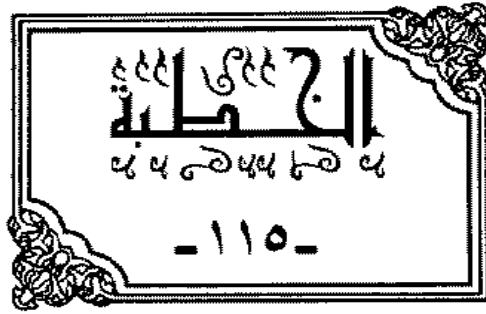 الخطبة
-١١٥-